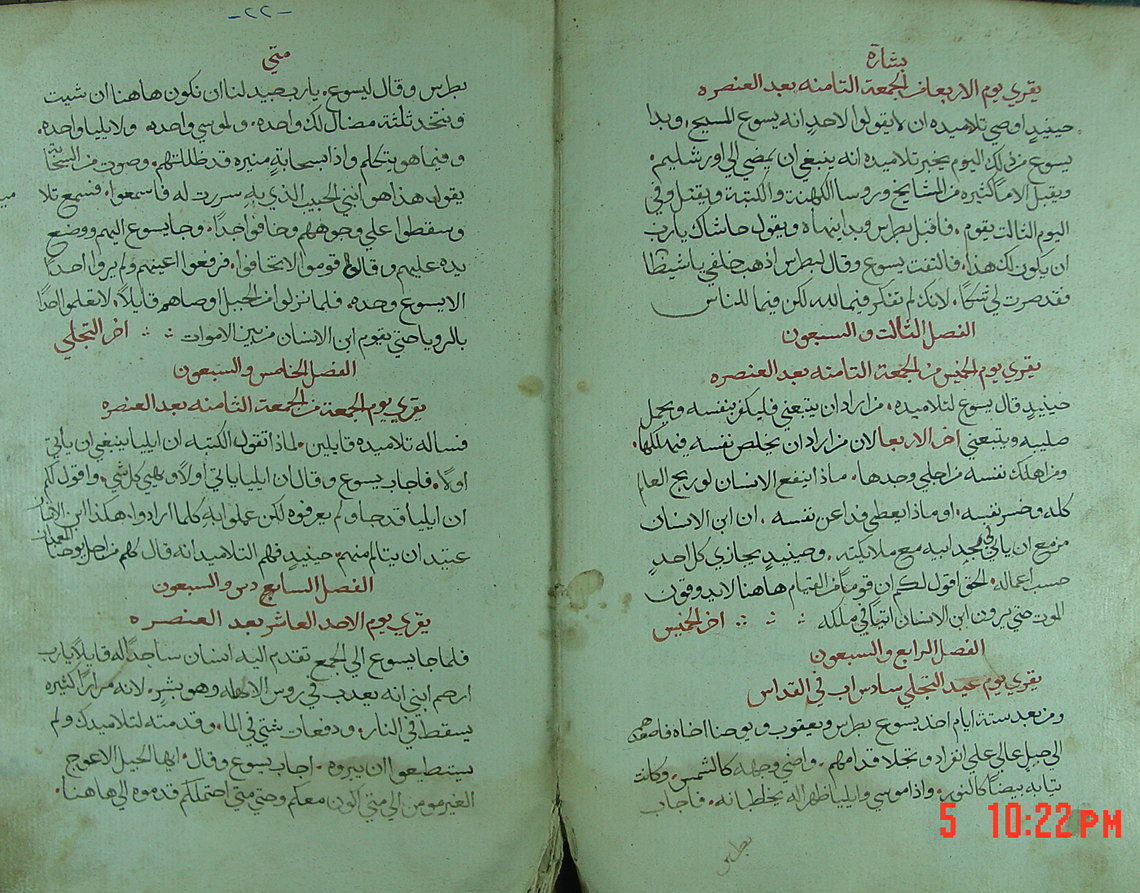 بشارة
يقري يوم الاربعا من الجمعة الثامنه بعد العنصره
حينيدٍ اوصي تلاميده ان لايقولوا لاحدٍ انه يسوع المسيح. وبدا
يسوع من ذلك اليوم يخبر تلاميده انه ينبغي ان يمضي الي اورشليم.
ويقبل الامًا كثيره من المشايخ وروسا الكهنة والكتبة ويقتل وفي
اليوم الثالت يقوم. فاقبل بطرس وبدا ينهاه ويقول حاشاك يارب
ان يكون لك هذا. فالتفت يسوع وقال لبطرس اذهب خلفي ياشيطان
فقد صرت لي شكًا. لانك لم تفكر فيما لله لكن فيما للناس
الفصل الثالت والسبعون
يقري يوم الخيس من الجمعة الثامنه بعد العنصره
حينيدٍ قال يسوع لتلاميده. من اراد ان يتبعني فليكفر بنفسه ويحمل
صليبه ويتبعني اخر الاربعا لان من اراد ان يخلص نفسه فيهلكها.
ومن اهلك نفسه من اجلي وجدها. ماذا ينفع الانسان لو ربح العالم
كله وخسر نفسه. او ماذا يعطي فدا عن نفسه. ان ابن الانسان
مزمع ان ياتي في مجد ابيه مع ملايكته. وحينيدٍ يجازي كل احدٍ
حسب اعماله. الحق اقول لكم ان قومًا من القيام هاهنا لايدوقون
الموت حتي يرون ابن الانسان اتيًا في ملكه اخر الخيس
الفصل الرابع والسبعون
يقري يوم عيد التجلي سادس اب في القداس
ومن بعد ستة ايام اخد يسوع بطرس ويعقوب ويوحنا اخاه فاصعدهم
الي جبلٍ عالي علي انفراد وتجلا قدامهم. واضي وجهه كالشمس. وكانت
تيابه بيضًا كالنور. واذا موسي وايليا ظهرا له يخاطبانه. فاجاب
بطرس
-٢٢-
متي
بطرس وقال ليسوع. يارب جيد لنا ان نكون هاهنا ان شيت
ونتخد ثلثة مضال لك واحده. ولموسي واحده ولايليا واحده.
وفيما هو يتكلم واذا بسحابةٍ منيره قد ظللتهم. وصوت من السحابة
يقول هذا هو ابني الحبيب الذي به سررت له فاسمعوا. فسمع تلا
وسقطوا علي وجوههم وخافوا جدًا. وجا يسوع اليهم ووضع
يده عليهم وقال قوموا لاتخافوا. فرفعوا اعينهم ولم يروا احدًا
الا يسوع وحده. فلما نزلوا من الجبل اوصاهم قايلًا. لاتعلموا احدًا
بالرويا حتي يقوم ابن الانسان من بين الاموات اخر التجلي
الفصل الخامس والسبعون
يقري يوم الجمعة من الجمعة الثامنه بعد العنصره
فساله تلاميده قايلين. لماذا تقول الكتبه ان ايليا ينبغي ان ياتي
اولًا. فاجاب يسوع وقال ان ايليا ياتي اولًا كل شي. واقول لكم
ان ايليا قد جا ولم يعرفوه لكن عملوا به كلما ارادوا. هكذا ابن الانسان
عتيد ان يتالم منهم. حينيدٍ فهم التلاميد انه قال لهم من اجل يوحنا المعمدان
الفصل السادس والسبعون
يقري يوم الاحد العاشر بعد العنصره
فلما جا يسوع الي الجمع تقدم اليه انسان ساجدًا له قايلًا يارب
ارحم ابني انه يعدب في روس الاهله وهو بشرٍ. لانه مرارًا كثيره
يسقط في النار. ودفعات شتي في الما. وقدمته لتلاميدك ولم
يستطيعوا ان يبروه. اجاب يسوع وقال. ايها الجيل الاعوج
الغير مومن الي متي اكون معكم وحتي متي احتملكم قدموه الي هاهنا.